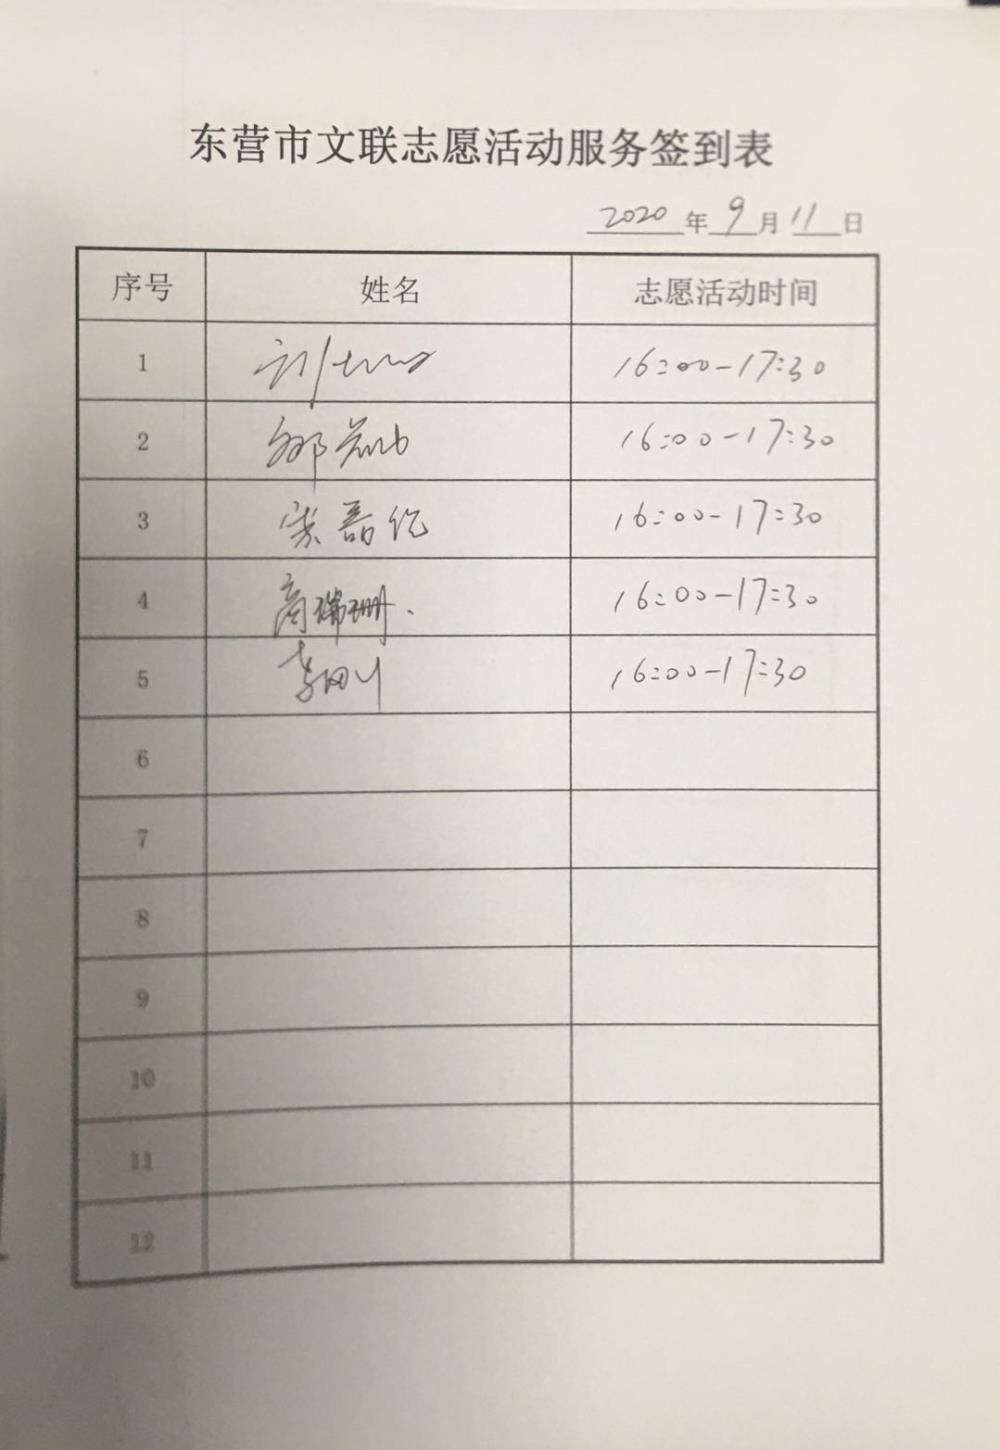 东营市文联志愿活动服务签到表
2020年9月11日
序号 姓名 志愿活动时间
1 刘 16:00-17:30
2 16:00-17:30
3 16:00-17:30
4 高瑞珊. 16:00-17:30
5 李刚 16:00-17:30
6
7
8
9
10
11
12